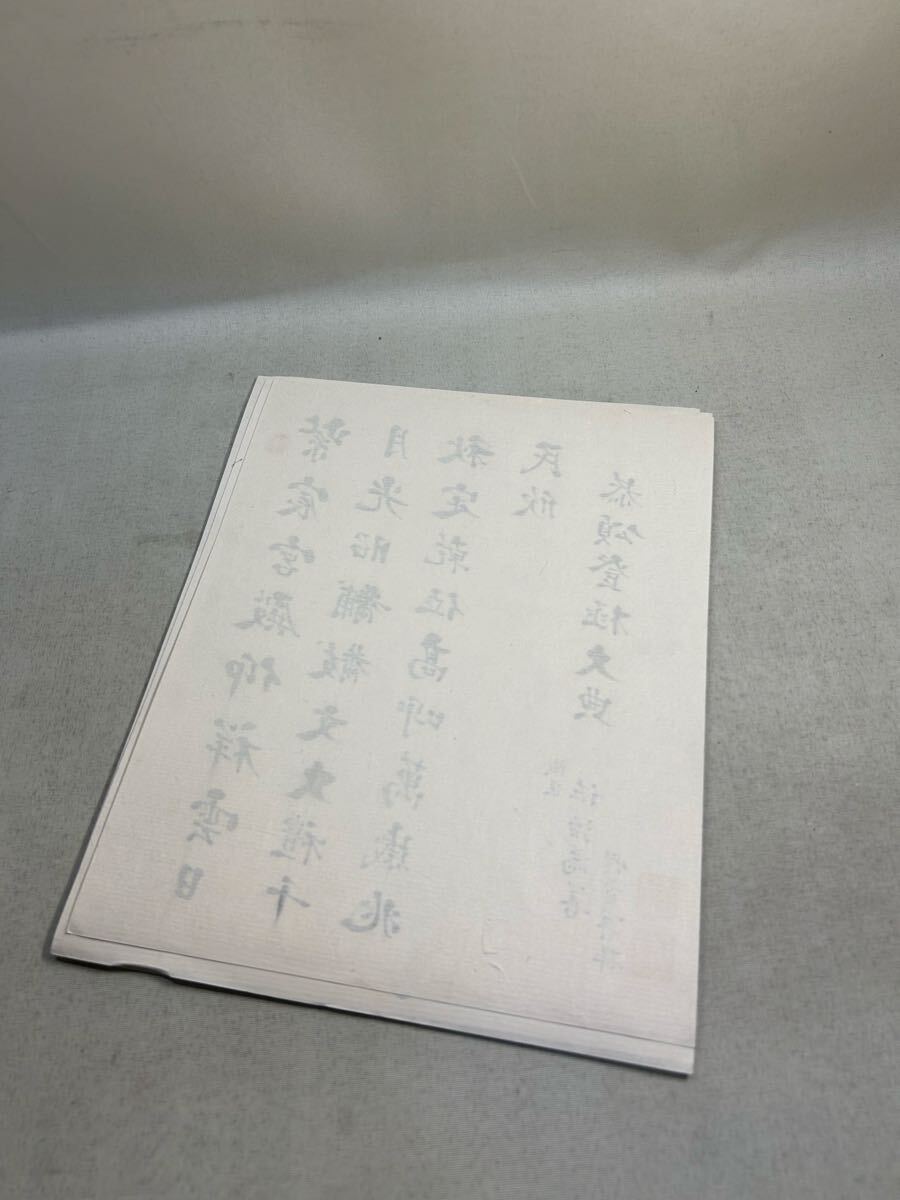 紫宸宮殿仰祥雲日
月光昭黼黻文大禮千
秋定乾位高呼萬歲兆
民欣
恭頌登極大典